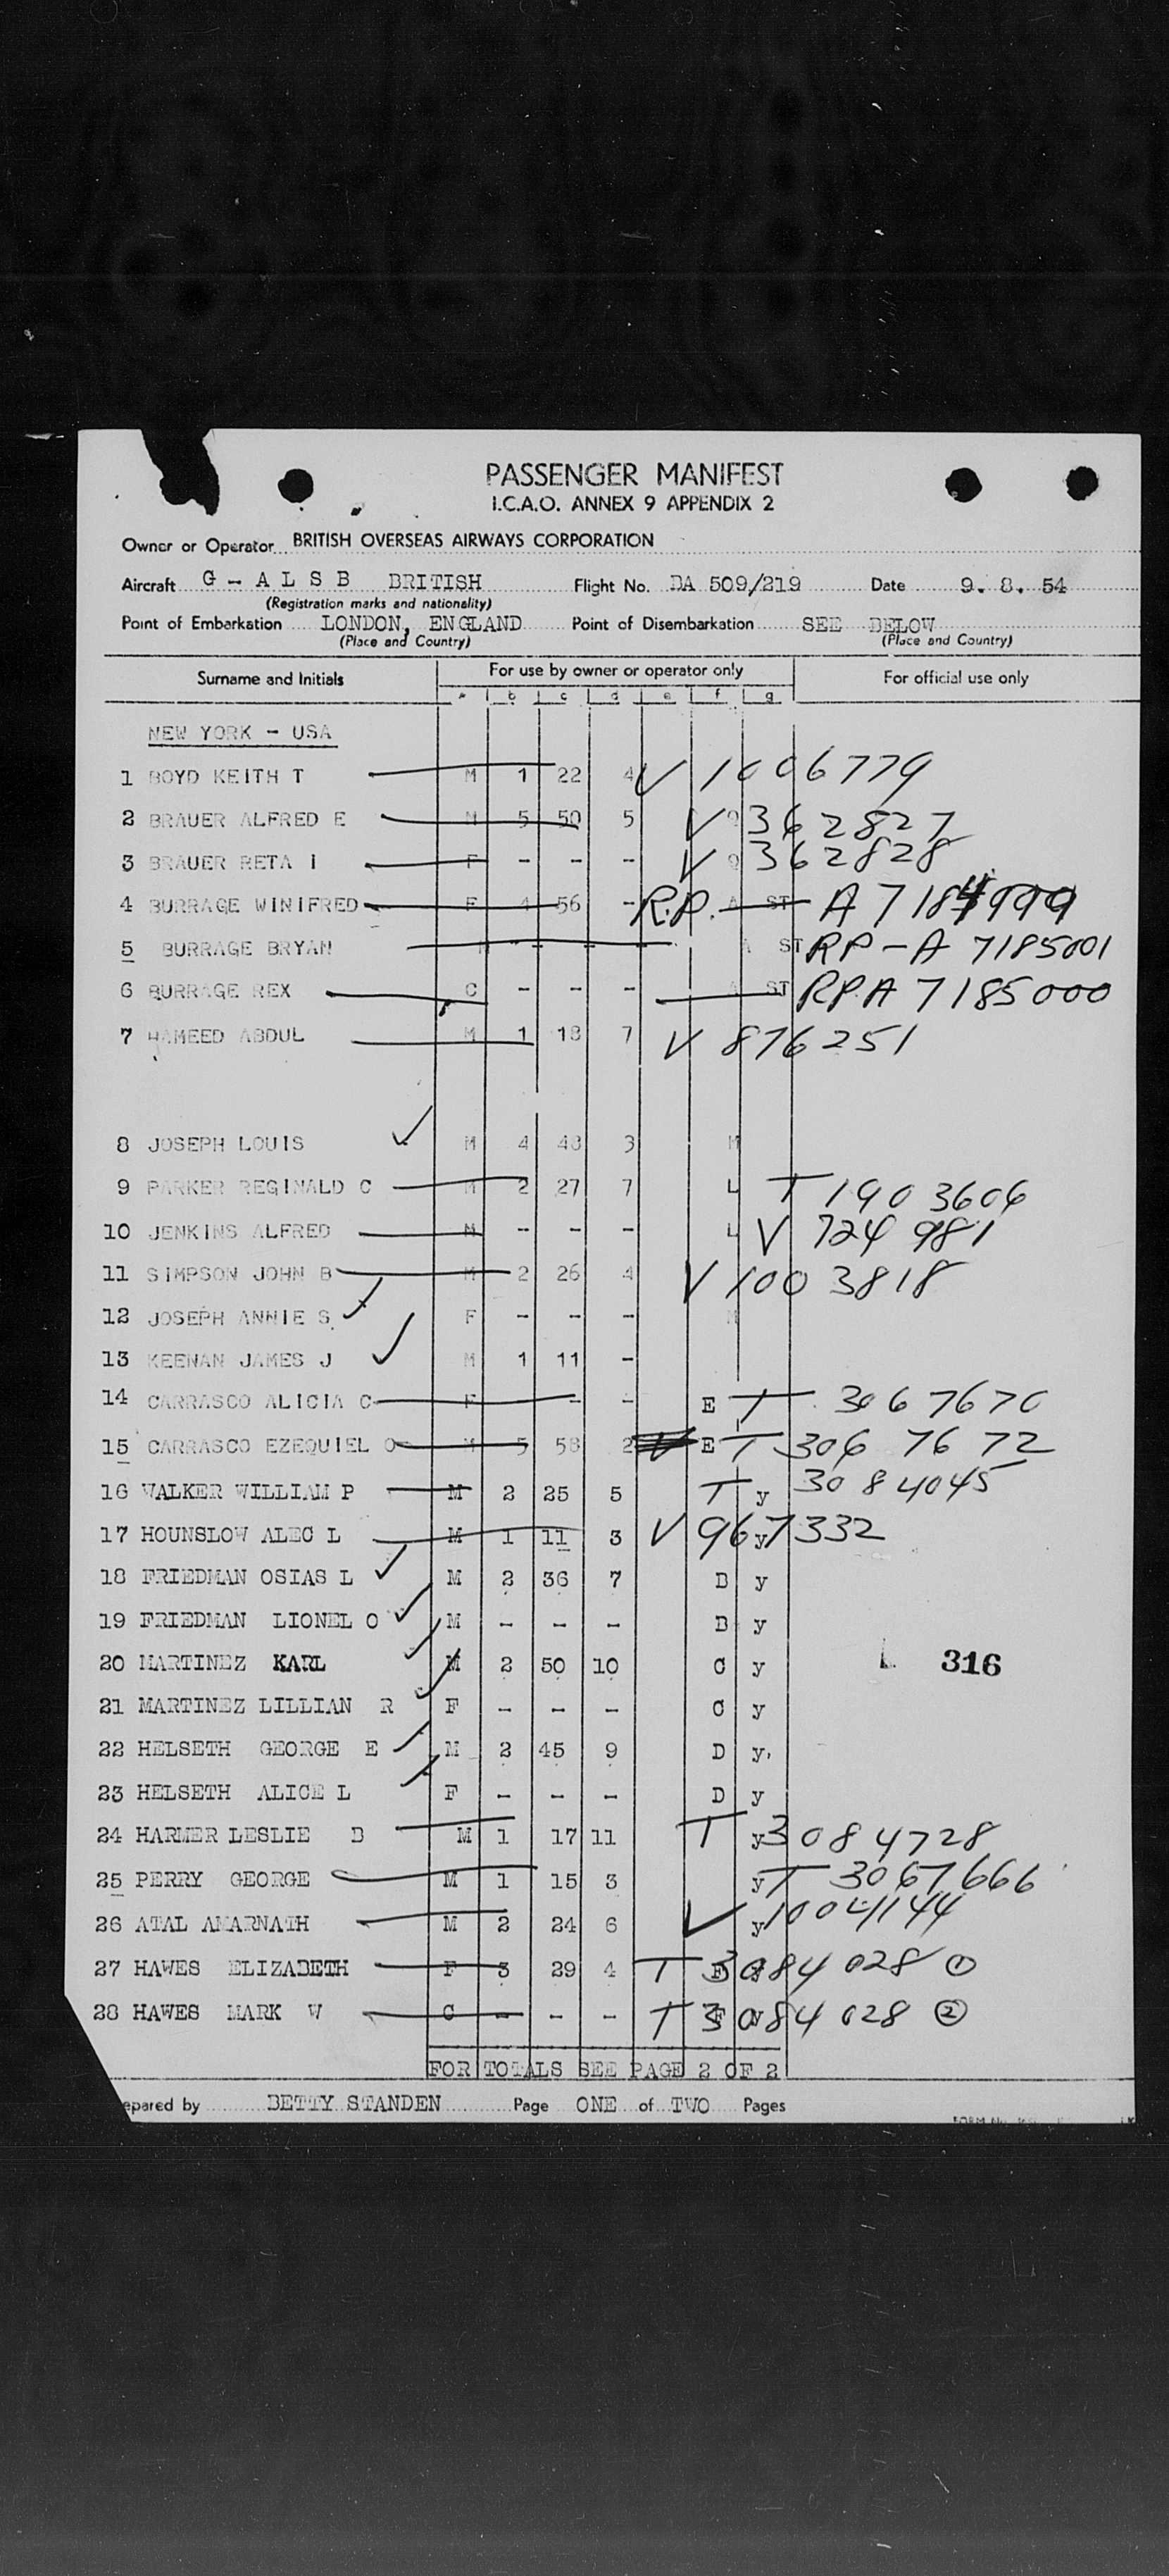 PASSENGER MANIFEST
I.C.A.O. ANNEX 9 APPENDIX 2
Owner or Operator BRITISH OVERSEAS AIRWAYS CORPORATION
Aircraft G - A L S B BRITISH Flight No. BA 509/219 Date 9. 8. 54
(Registration marks and nationality)
Point of Embarkation LONDON, ENGLAND Point of Disembarkation SEE BELOW
(Place and Country) (Place and Country)
Surname and Initials For use by owner or operator only For official use only
a b c d e f g
NEW YORK - USA
1 BOYD KEITH T M 1 22 4 V 1006779
2 BRAUER ALFRED E M 5 50 5 V 362827
3 BRAUER RETA I F - - - V 362828
4 BURRAGE WINIFRED F 4 56 - R.P. A ST A 7184999
5 BURRAGE BRYAN - - - A ST RP-A 7185001
6 BURRAGE REX C - - - A ST RP.A 7185000
7 HAMEED ABDUL M 1 18 7 V 876251
8 JOSEPH LOUIS M 4 48 3 M
9 PARKER REGINALD C M 2 27 7 L T 1903606
10 JENKINS ALFRED M - - - L V 724981
11 SIMPSON JOHN B M 2 26 4 V 1003818
12 JOSEPH ANNIE S F - - - M
13 KEENAN JAMES J M 1 11 -
14 CARRASCO ALICIA C F - - - E T 3067670
15 CARRASCO EZEQUIEL O M 5 58 2 E T 3067672
16 WALKER WILLIAM P M 2 25 5 T y 3084045
17 HOUNSLOW ALEC L M 1 11 3 V 967332 y
18 FRIEDMAN OSIAS L M 2 36 7 B y
19 FRIEDMAN LIONEL O M - - - B y
20 MARTINEZ KARL M 2 50 10 C y 316
21 MARTINEZ LILLIAN R F - - - C y
22 HELSETH GEORGE E M 2 45 9 D y
23 HELSETH ALICE L F - - - D y
24 HARMER LESLIE B M 1 17 11 T y 3084728
25 PERRY GEORGE M 1 15 3 y T 3067666
26 ATAL AMARNATH M 2 24 6 V y 1004144
27 HAWES ELIZABETH F 3 29 4 T 3084028 ①
28 HAWES MARK W C - - - T 3084028 ②
FOR TOTALS SEE PAGE 2 OF 2
epared by BETTY STANDEN Page ONE of TWO Pages